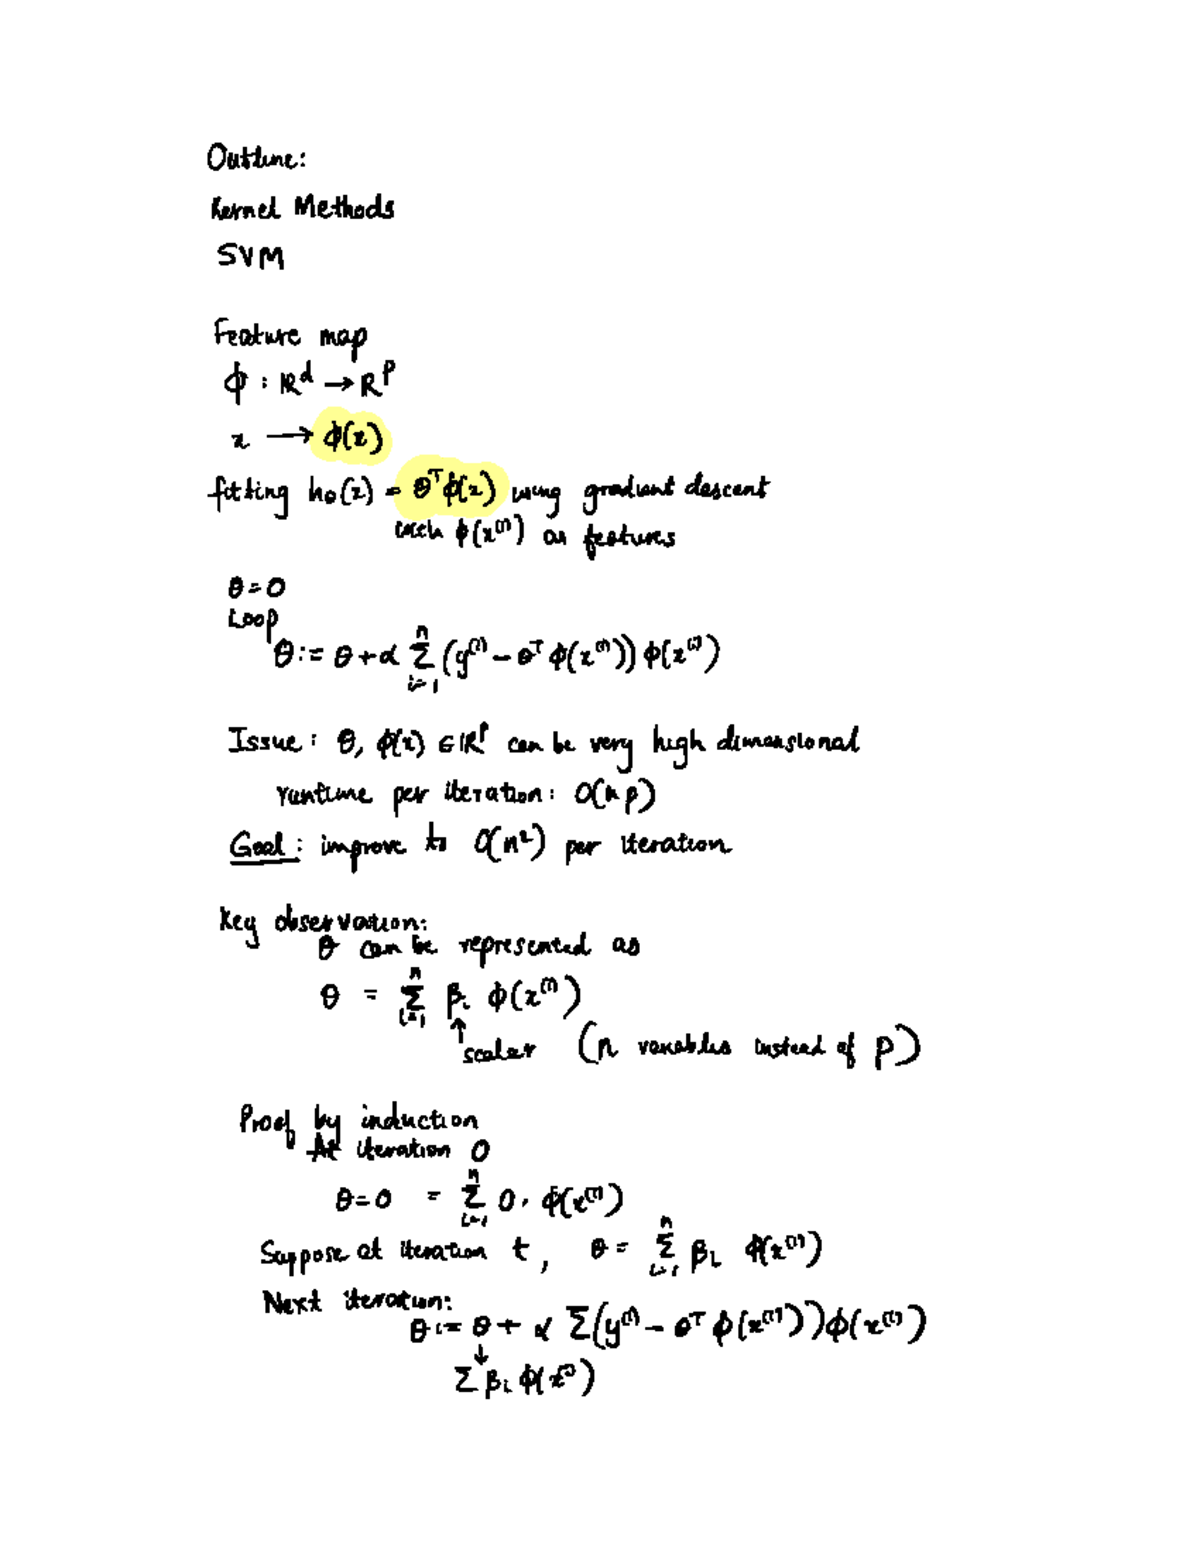 Outline:
Kernel Methods
SVM
Feature map
ϕ : ℝᵈ → ℝᵖ
x ⟶ ϕ(x)
fitting h_θ(x) = θᵀϕ(x) using gradient descent
with ϕ(x⁽ⁱ⁾) as features
θ = 0
Loop
θ := θ + α Σⁿᵢ₌₁ (y⁽ⁱ⁾ − θᵀ ϕ(x⁽ⁱ⁾)) ϕ(x⁽ⁱ⁾)
Issue : θ, ϕ(x) ∈ ℝᵖ can be very high dimensional
runtime per iteration: O(n p)
Goal : improve to O(n²) per iteration
Key observation:
θ can be represented as
θ = Σⁿᵢ₌₁ βᵢ ϕ(x⁽ⁱ⁾)
↑ scaler (n variables instead of p)
Proof by induction
At iteration 0
θ = 0 = Σⁿᵢ₌₁ 0 · ϕ(x⁽ⁱ⁾)
Suppose at iteration t , θ = Σⁿᵢ₌₁ βᵢ ϕ(x⁽ⁱ⁾)
Next iteration:
θ := θ + α Σ(y⁽ⁱ⁾ − θᵀ ϕ(x⁽ⁱ⁾))ϕ(x⁽ⁱ⁾)
↓
Σ βᵢ ϕ(x⁽ⁱ⁾)